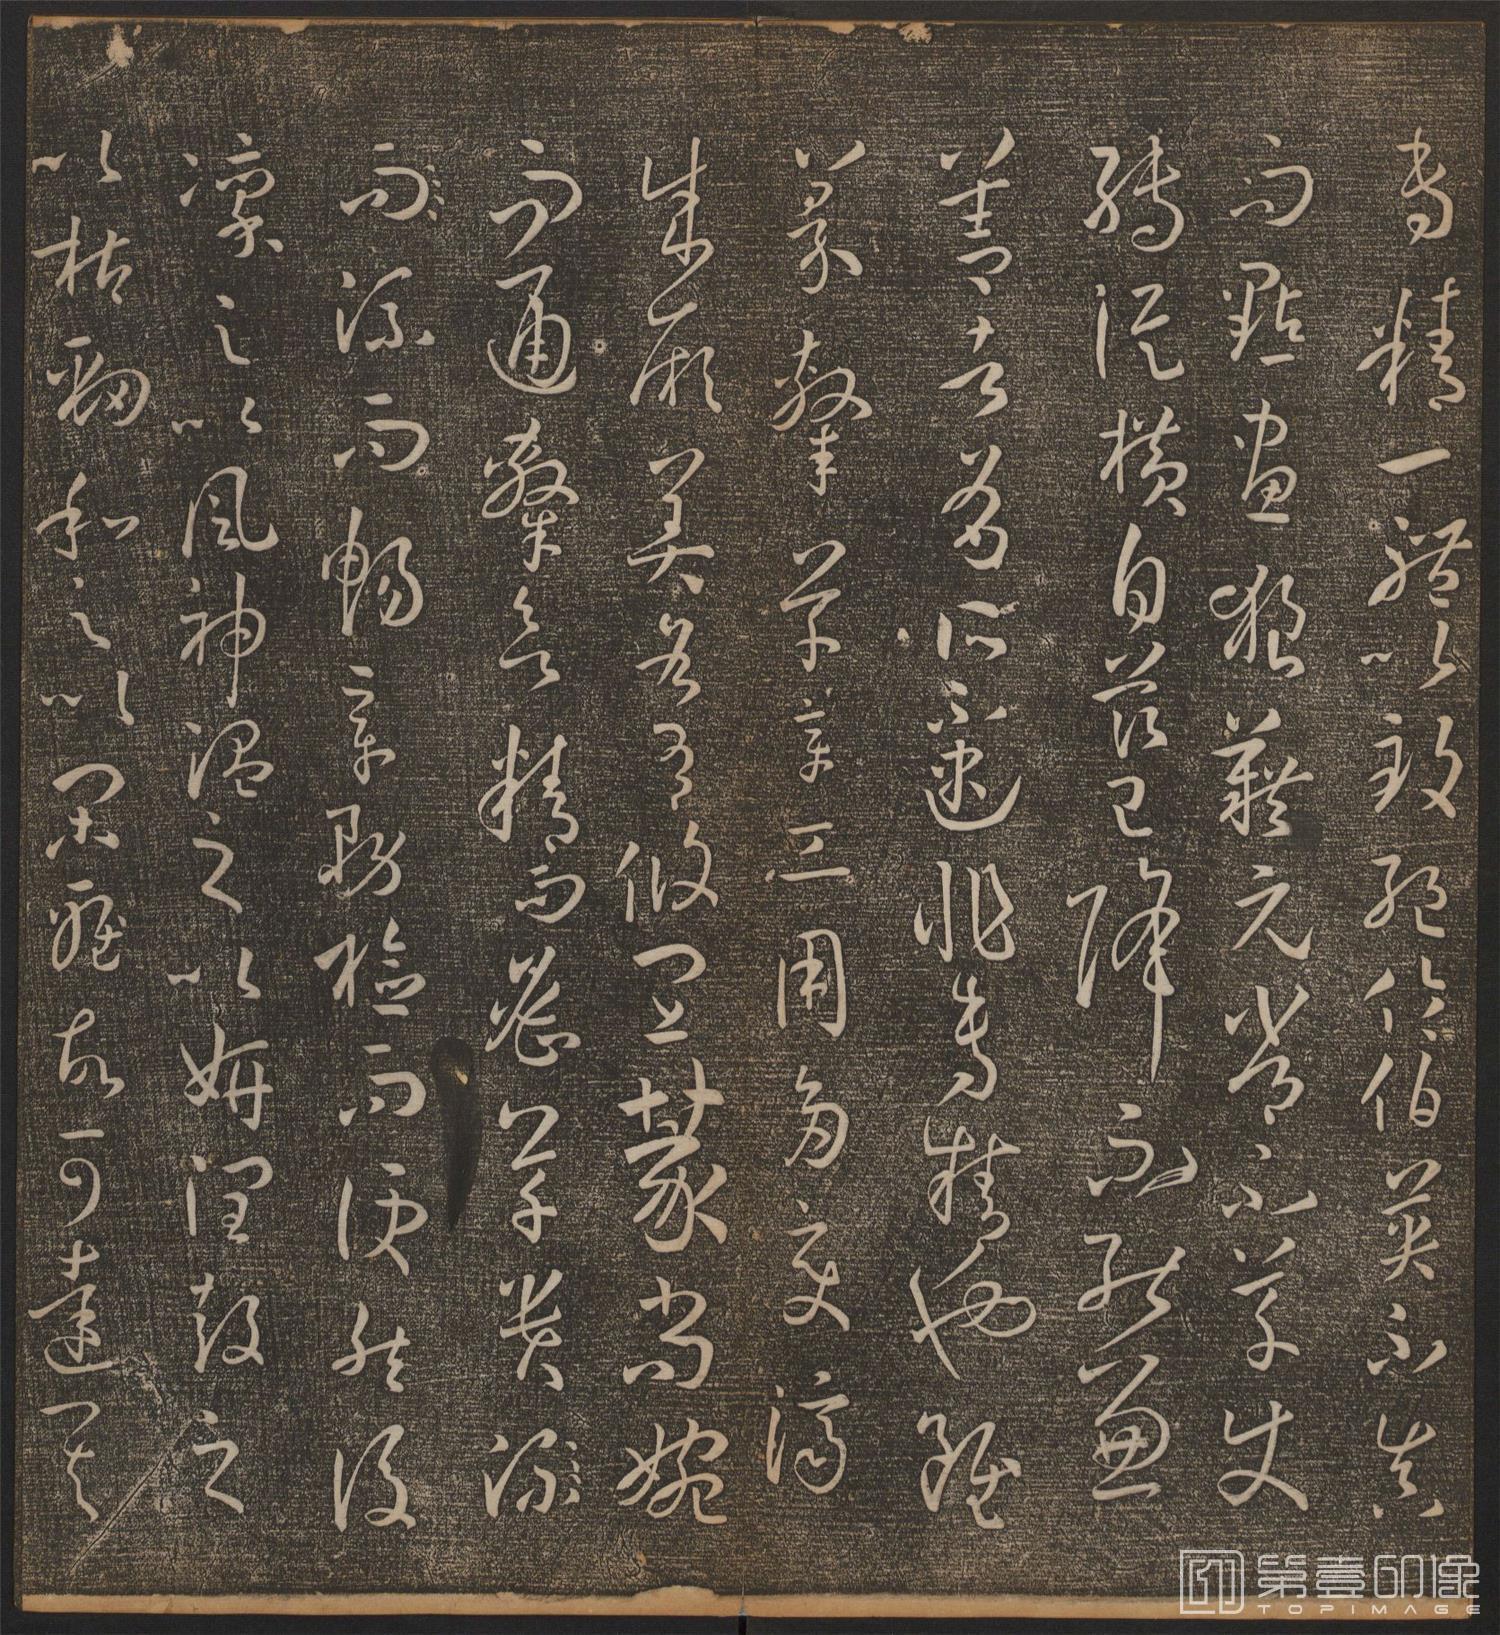 專精一體以致絕倫伯英不真
而點畫狼藉元常不草使
轉縱橫自茲已降不能兼
善者有所不逮非專精也雖
篆隸草章工用多變濟
成厥美各有攸宜篆尚婉
而通隸欲精而密草貴流
而流而暢章務檢而便然後
凜之以風神溫之以妍潤鼓之
以枯勁和之以閑雅故可達其
第壹印像
TOPIMAGE